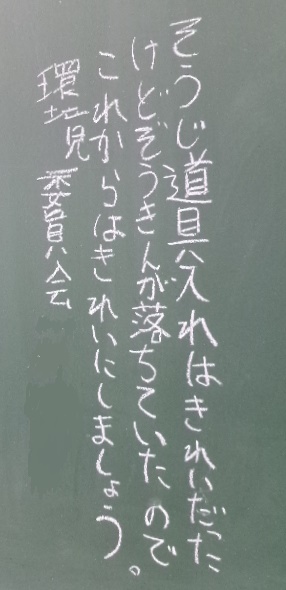 そうじ道具入れはきれいだった
けどぞうきんが落ちていたので
これからはきれいにしましょう。
環境委員会